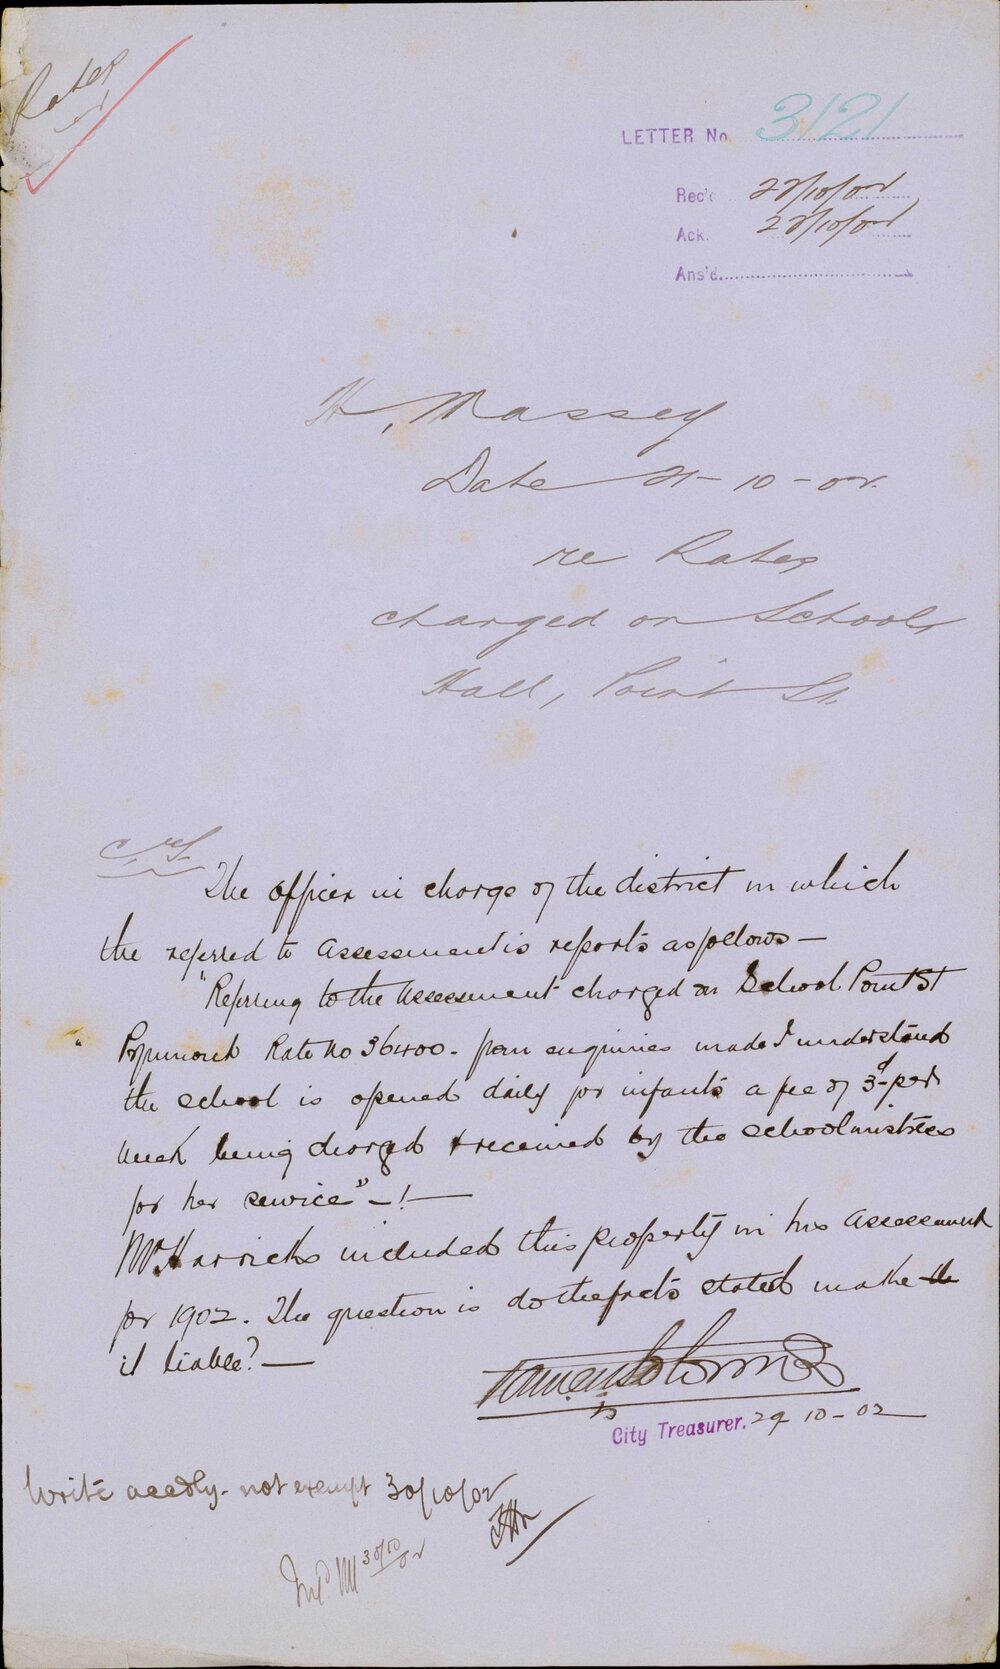 Rates
LETTER No 3121
Rec'd 22/10/02
Ack. 22/10/02
Ans'd
H. Massey
Date 21-10-02
re Rates
charged on School
Hall, Point St.
The officer in charge of the district in which
the referred to assessment is reports as follows —
"Referring to the assessment charged on School Point St
Pyrmont Rate No 36400 - from enquiries made I understand
the school is opened daily for infants a fee of 3d per
week being charged & received by the schoolmistress
for her service" - ! —
Mr Harricks included this property in his assessment
for 1902. The question is do the facts stated make
it liable? —
City Treasurer. 29 10-02
Write accdly - not exempt 30/10/02
30/10/02